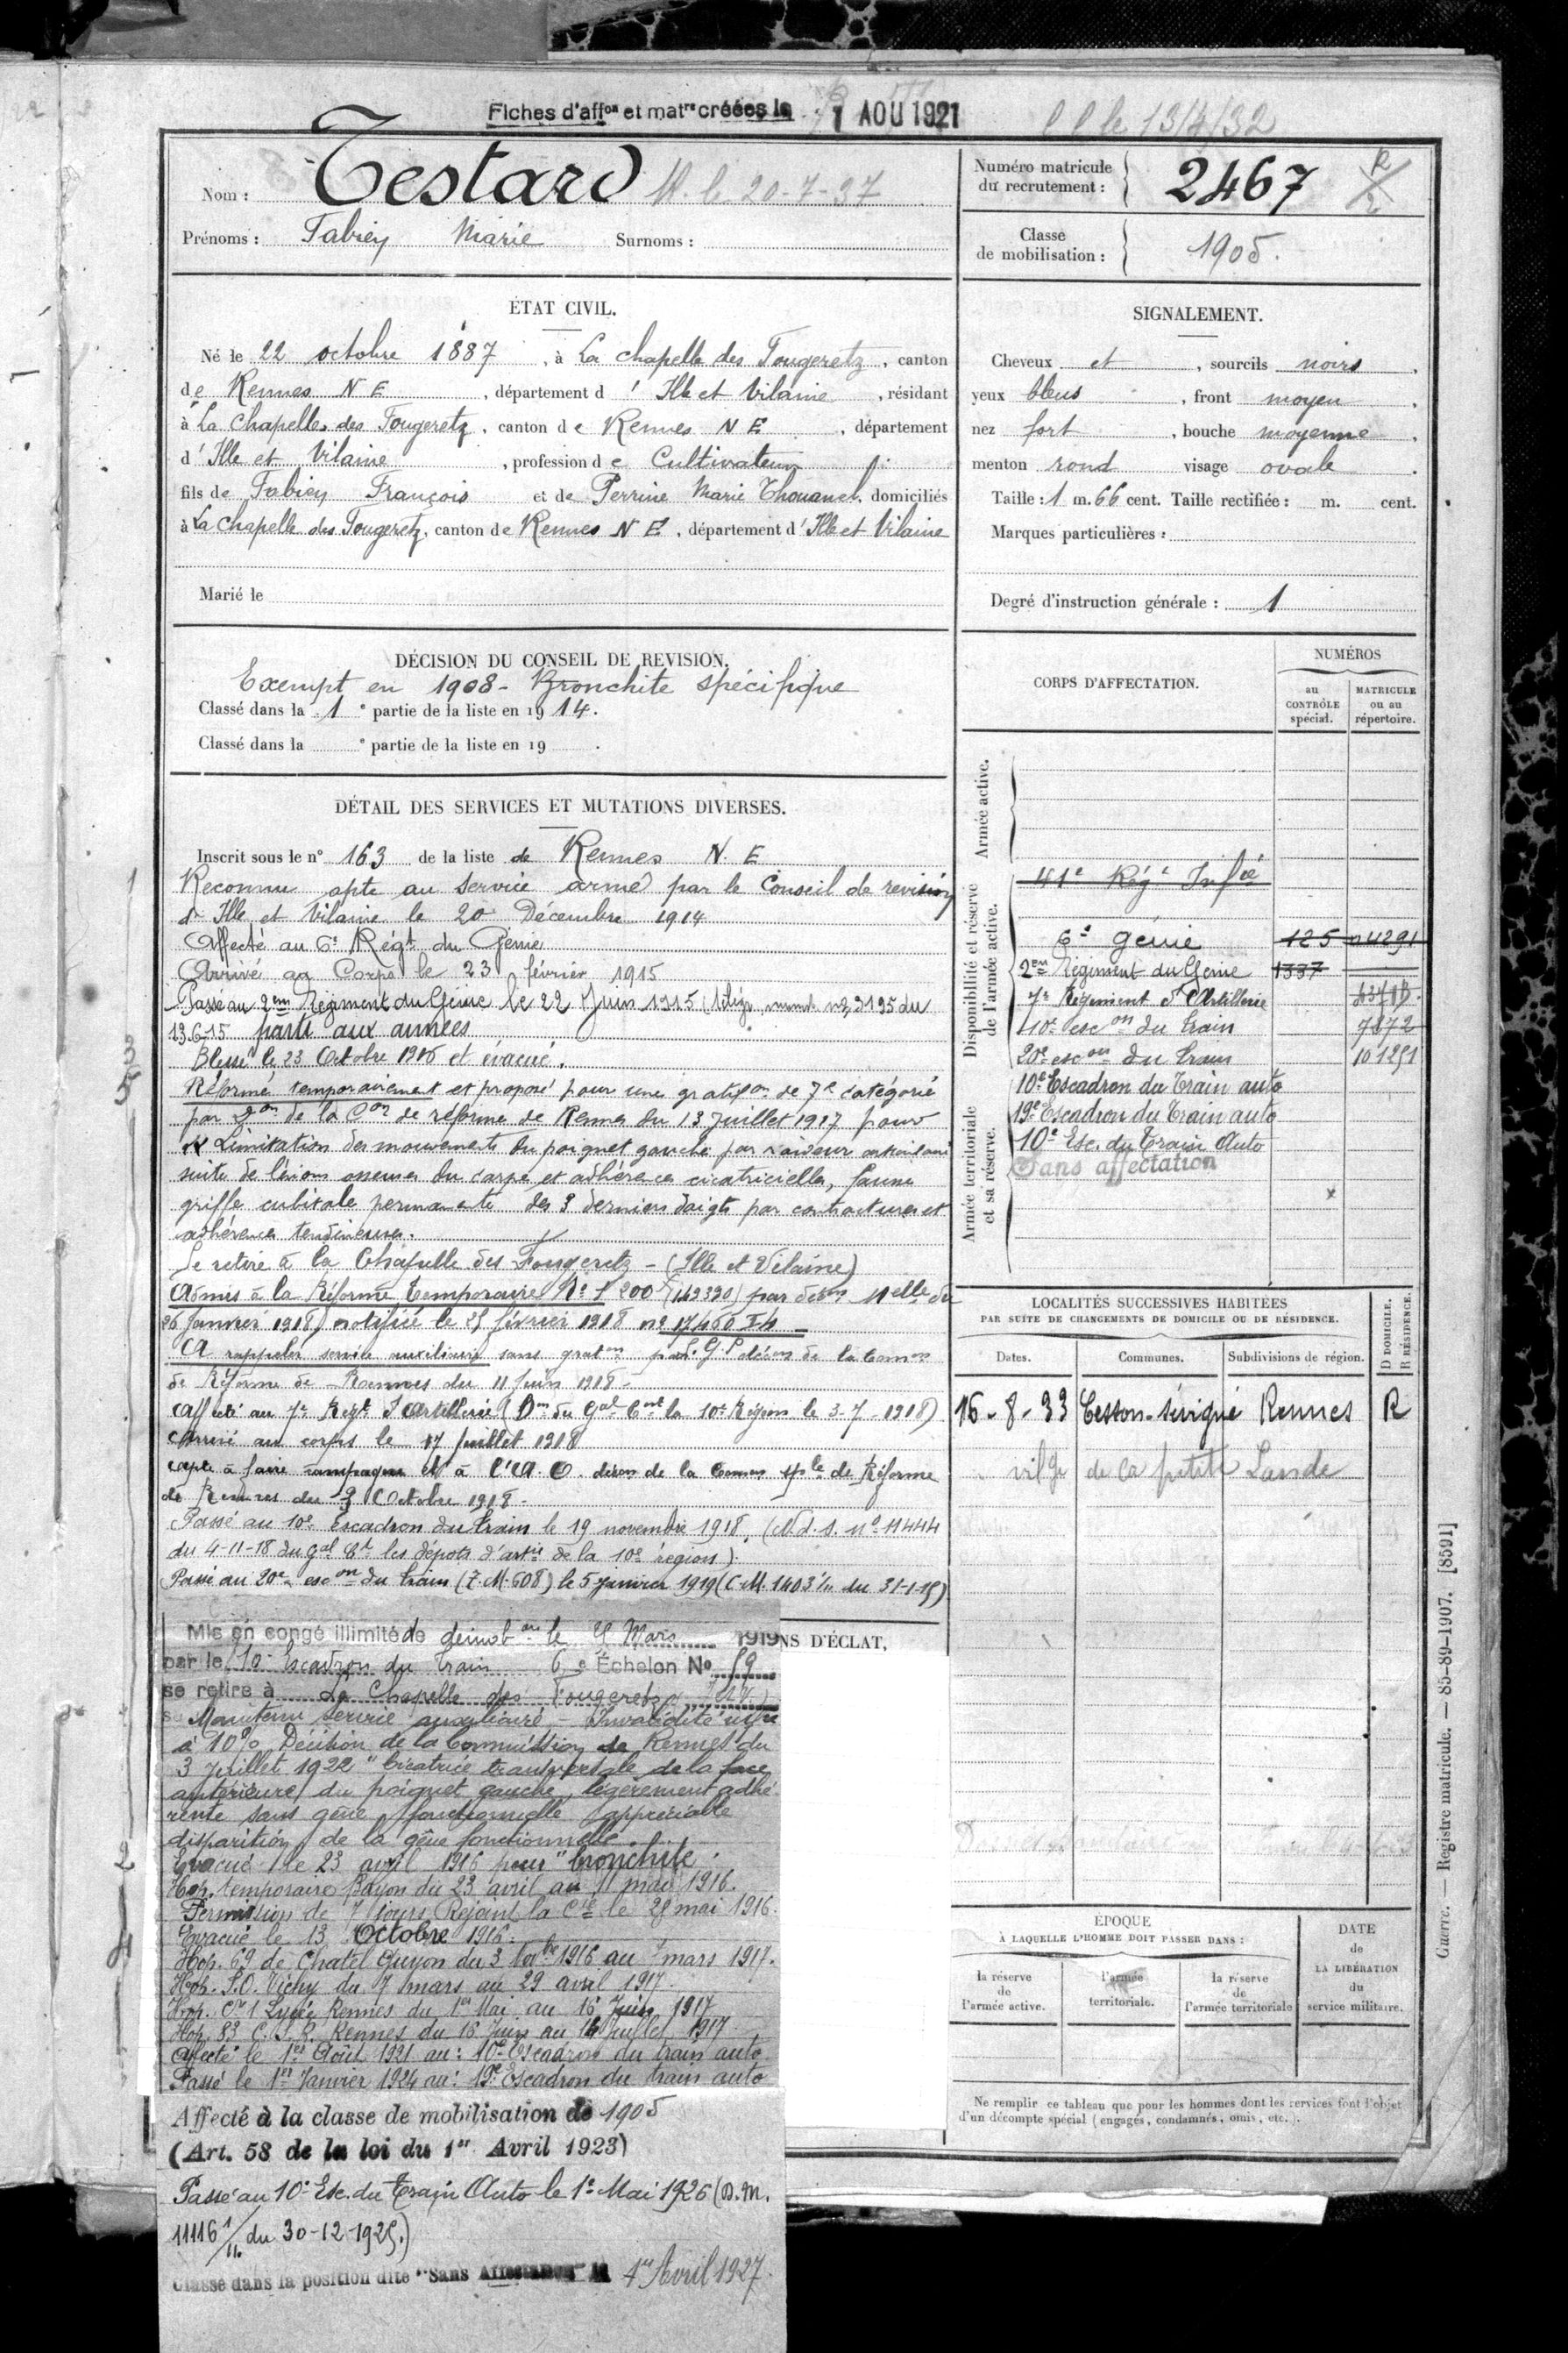 Fiches d'affon et matre créées le 1 AOU 1921
l l le 13/4/32
Nom : Testard R. le 20-7-37
Prénoms : Fabien Marie Surnoms :
Numéro matricule du recrutement : 2467
Classe de mobilisation : 1905.
ÉTAT CIVIL.
Né le 22 octobre 1887, à La Chapelle des Fougeretz, canton
de Rennes N E, département d' Ille et Vilaine, résidant
à La Chapelle des Fougeretz, canton de Rennes N E, département
d' Ille et Vilaine, profession de Cultivateur
fils de Fabien François et de Perrine Marie Thouanel, domiciliés
à La Chapelle des Fougeretz, canton de Rennes N E, département d' Ille et Vilaine
Marié le
SIGNALEMENT.
Cheveux et, sourcils noirs,
yeux bleus, front moyen,
nez fort, bouche moyenne,
menton rond visage ovale.
Taille : 1 m. 66 cent. Taille rectifiée : m. cent.
Marques particulières :
Degré d'instruction générale : 1
DÉCISION DU CONSEIL DE REVISION.
Exempt en 1908 - Bronchite spécifique
Classé dans la 1e partie de la liste en 1914.
Classé dans la e partie de la liste en 19 .
DÉTAIL DES SERVICES ET MUTATIONS DIVERSES.
Inscrit sous le n° 163 de la liste de Rennes N. E
Reconnu apte au service armé par le Conseil de revision
d' Ille et Vilaine le 20 Décembre 1914
Affecté au 6e Régt du Génie
Arrivé au Corps le 23 février 1915
Passé au 2em Régiment du Génie le 22 Juin 1915 ( n° 3195 du
13.6.15 parti aux armées
Blessé le 23 Octobre 1916 et évacué.
Réformé temporairement et proposé pour une gratifon de 7e catégorie
par don de la Con de réforme de Rennes du 13 Juillet 1917 pour
Limitation des mouvements du poignet gauche par raideur articulaire
suite de lésions osseuses du carpe et adhérences cicatricielles, fausse
griffe cubitale permanente des 3 derniers doigts par contractures et
adhérences tendineuses.
Se retire à la Chapelle des Fougeretz - (Ille et Vilaine)
Admis à la Réforme temporaire N° 1 200 (142320) par décon Mlle du
26 Janvier 1918, notifiée le 25 février 1918 n° 17460 I/4
A rappeler service auxiliaire sans graton par S.G.P décon de la Comon
de Réforme de Rennes du 11 Juin 1918 -
Affecté au 7e Régt d'Artillerie (Don du Gal Ct la 10e Région le 3-7-1918)
Arrivé au corps le 17 Juillet 1918
apte à faire campagne et à l'A.O. décon de la Comon sple de Réforme
de Rennes du 9 Octobre 1918 -
Passé au 10e Escadron du train le 19 novembre 1918. (N.d.s. n° 11444
du 4-11-18 du Gal Ct les dépots d'artie de la 10e région).
Passé au 20e escon du train (T.M.608) le 5 Janvier 1919 (C.M. 1403 1/11 du 31-1-19)
NS D'ÉCLAT,
Mis en congé illimité de démobon le 5 Mars 1919
par le 10e Escadron du train 6e Échelon No 59
se retire à La Chapelle des Fougeretz
Maintenu service auxiliaire - Invalidité infre
à 10% Décision de la Commission de Rennes du
3 Juillet 1922 "Cicatrice transversale de la face
antérieure du poignet gauche, légèrement adhé
rente sans gêne fonctionnelle appréciable
disparition de la gêne fonctionnelle.
Evacué le 23 avril 1916 pour "bronchite".
Hop. temporaire Bayon du 23 avril au 11 mai 1916.
Permission de 7 jours. Rejoint la Cie le 28 mai 1916.
Evacué le 13 Octobre 1916.
Hop. 69 de Chatel Guyon du 3 Novbre 1916 au 7 mars 1917.
Hop. S.O. Vichy du 7 mars au 29 avril 1917.
Hop. Cre 1 Lycée Rennes du 1er Mai au 16 Juin 1917
Hop. 83 C.S.R. Rennes du 16 Juin au 14 Juillet 1917
Affecté le 1er Août 1921 au: 10e Escadron du train auto
Passé le 1er Janvier 1924 au: 19e Escadron du train auto
Affecté à la classe de mobilisation de 1905
(Art. 58 de la loi du 1er Avril 1923)
Passé au 10e Esc. du Train Auto le 1e Mai 1926 (D.M.
11116 1/11 du 30-12-1925.)
Classé dans la position dite "Sans Affectation" le 1er Avril 1927.
CORPS D'AFFECTATION.
NUMÉROS
au CONTRÔLE spécial.
MATRICULE ou au répertoire.
Armée active.
Disponibilité et réserve de l'armée active.
Armée territoriale et sa réserve.
41e Régt Infie
6e Génie 125 04291
2em Régiment du Génie 1337
7e Régiment d'Artillerie
10e escon du train 7872
20e escon du train 101251
10e Escadron du Train auto
19e Escadron du Train auto
10e Esc. du Train Auto
Sans affectation
LOCALITÉS SUCCESSIVES HABITÉES
PAR SUITE DE CHANGEMENTS DE DOMICILE OU DE RÉSIDENCE.
D DOMICILE. R RÉSIDENCE.
Dates. Communes. Subdivisions de région.
16-8-33 Cesson-sévigné Rennes R
vilge de la petite Lande
ÉPOQUE
À LAQUELLE L'HOMME DOIT PASSER DANS :
la réserve de l'armée active.
l'armée territoriale.
la réserve de l'armée territoriale
DATE de LA LIBÉRATION du service militaire.
Ne remplir ce tableau que pour les hommes dont les services font l'objet
d'un décompte spécial (engagés, condamnés, omis, etc.).
Guerre. — Registre matricule. — 85-89-1907. [8591]